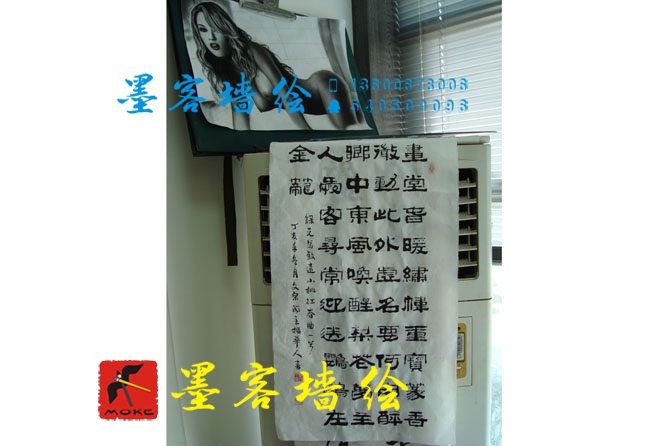 墨客墙绘
畫堂春暖繡幃重寶篆香
微動此外虛名要何用醉
鄉中東風喚醒梨花夢主
人愛客尋常迎送鸚鵡在
金籠
MOKE
墨客墙绘